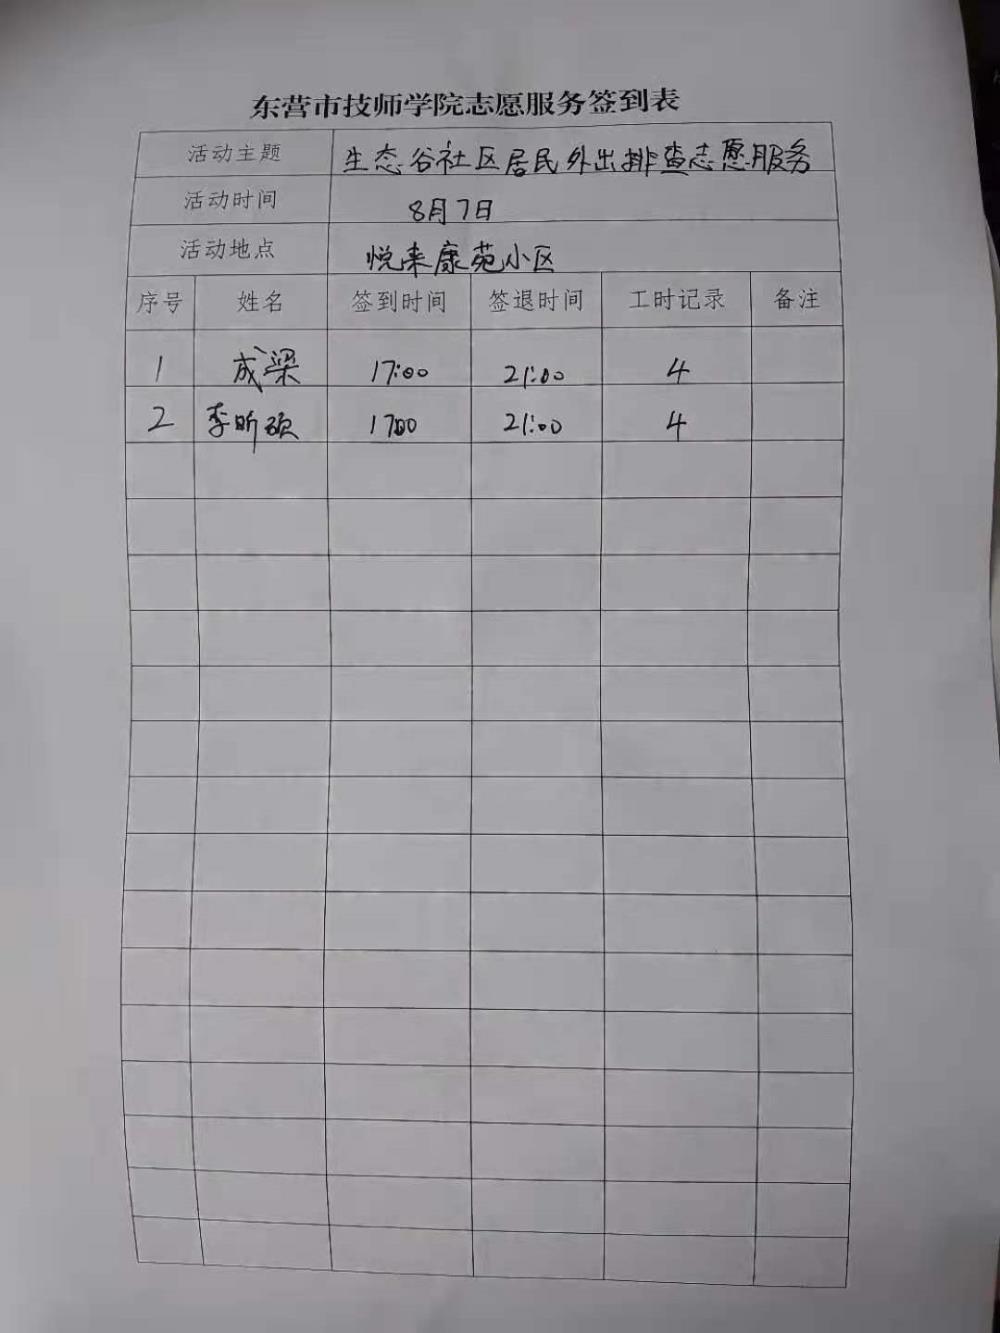 东营市技师学院志愿服务签到表
活动主题 生态谷社区居民外出排查志愿服务
活动时间 8月7日
活动地点 悦来康苑小区
序号 姓名 签到时间 签退时间 工时记录 备注
1 成梁 17:00 21:00 4
2 李昕硕 1700 21:00 4